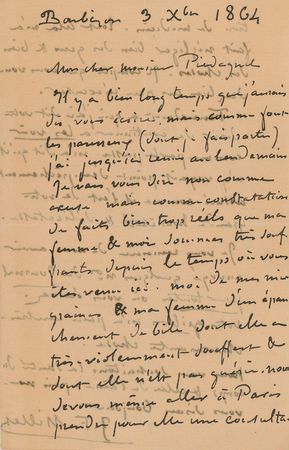 Barbizon 3 Xbre 1864
Mon cher monsieur Piedagnel
Il y a bien longtemps que j'aurais
dû vous écrire, mais comme font
les paresseux (dont je fais partie)
j'ai jusqu'ici remis au lendemain
Je vais vous dire non comme
excuse mais comme constatation
de faits bien trop réels que ma
femme & moi sommes très souf
frants depuis le temps où vous
êtes venu ici. moi de mes mi
graines & ma femme d'un épan
chement de bile dont elle a
très violemment souffert &
dont elle n'est pas guérie. nous
devons même aller à Paris
prendre pour elle une consulta